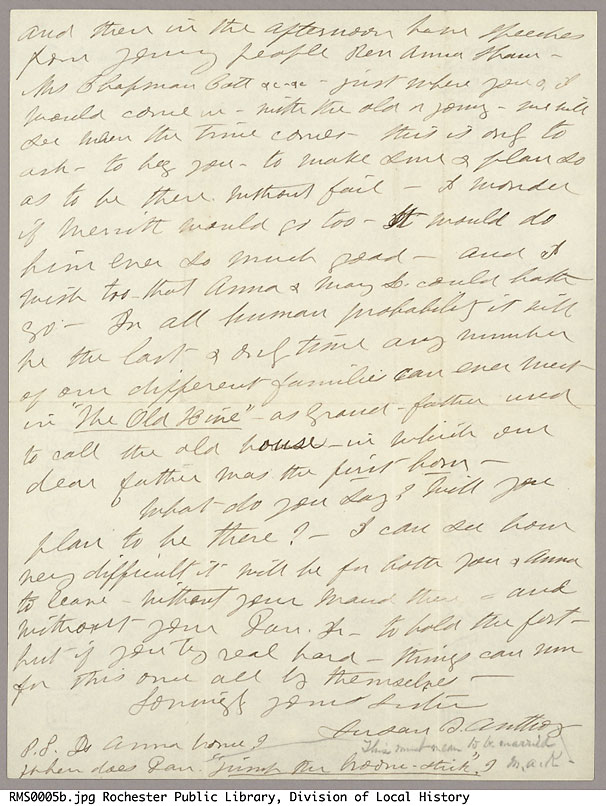 and then in the afternoon have speeches
from young people Rev Anna Shaw -
Mrs Chapman Catt &c &c - just where you & I
would come in - with the old or young - we will
see when the time comes - this is only to
ask - to beg you - to make sure & plan so
as to be there without fail - I wonder
if Merritt would go too - It would do
him ever so much good - and I
wish too - that Anna & May S. could both
go - In all human probability it will
be the last & only time any number
of our different families can ever meet
in "The Old Hive" - as Grand-father used
to call the old house - in which our
dear father was the first born -
What do you say? Will you
plan to be there? - I can see how
very difficult it will be for both you & Anna
to leave - without your Maud there - and
without your Dan. Jr - to hold the fort -
but if you try real hard - things can run
for this once all by themselves -
Lovingly your Sister
Susan B. Anthony
P.S. Is Anna home?
When does Dan. "jump the broom-stick"?
This must mean to be married
M. a. K.
RMS0005b.jpg Rochester Public Library, Division of Local History